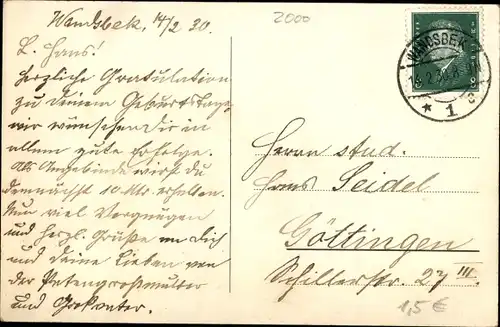 Wandsbek, 14/2 30.
2000
L. Hans!
Herzliche Gratulation
zu deinem Geburtstage,
wir wünschen dir in
allem gute Erfolge.
Als Angebinde wirst du
demnächst 10 Mk erhalten.
Nun viel Vergnügen
und herzl. Grüße an Dich
und deine Lieben von
der Patengroßmutter
und
WANDSBEK
1
Herrn stud.
Hans Seidel
Göttingen
Schillerstr. 27 III
1,5 €